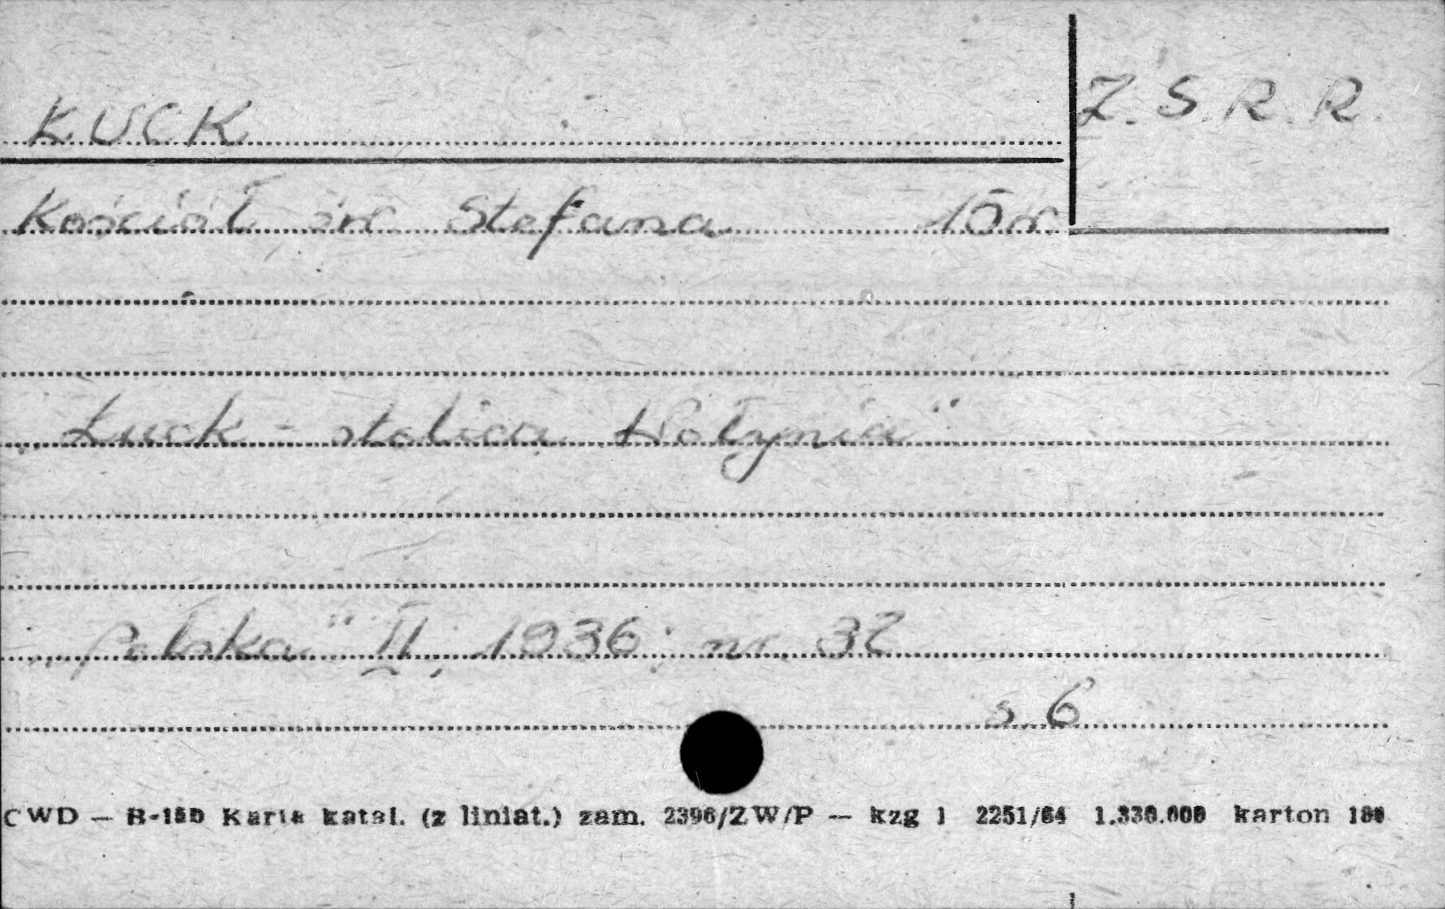 KUCK
Z.S.R.R.
Kościół św Stefana 15w
"Łuck - stolica Wołynia"
"Polska" II, 1936; nr. 32
s. 6
CWD — B-15D Karta katal. (z liniat.) zam. 2396/ZW/P — kzg 1 2251/64 1.330.000 karton 180